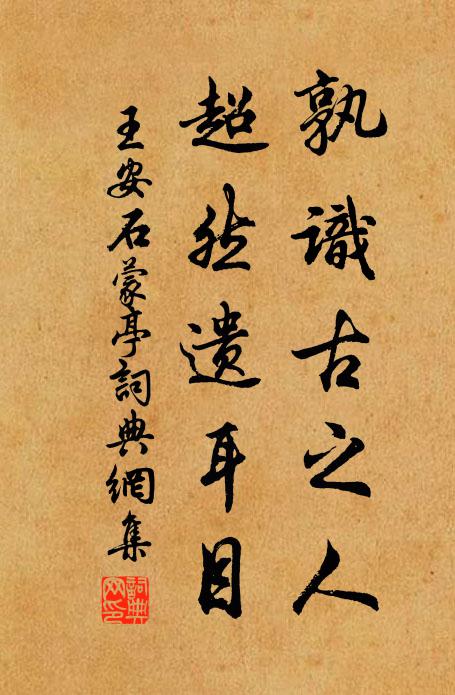 孰識古之人
超然遺耳目
王安石蒙亭詞典網集
詞典網印